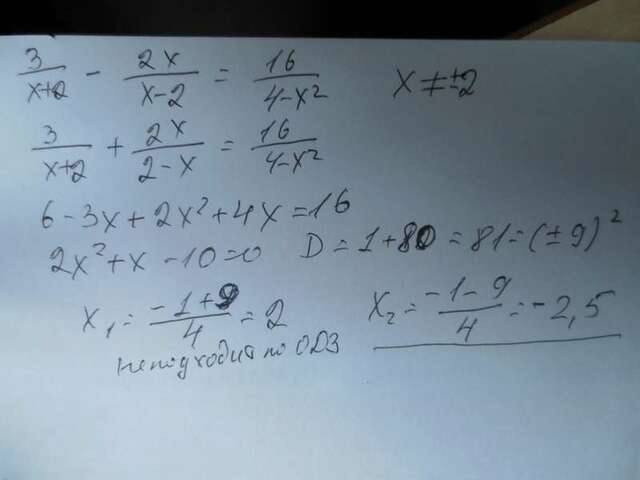 3/(x+2) - 2x/(x-2) = 16/(4-x²) x ≠ ±2
3/(x+2) + 2x/(2-x) = 16/(4-x²)
6-3x+2x²+4x=16
2x²+x-10=0 D=1+80=81=(±9)²
x₁=(-1+9)/4=2 x₂=(-1-9)/4=-2,5
не подходит по ОДЗ